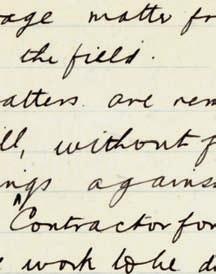 age matter fr
the field.
atters are rem
ll, without f
ngs against
^
Contractor for
work to be d